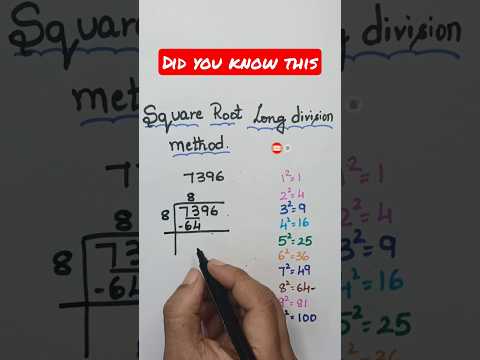 DID YOU KNOW THIS
Square Root Long division
method.
7396
8
8 7396
-64
1²=1
2²=4
3²=9
4²=16
5²=25
6²=36
7²=49
8²=64-
9²=81
²=100